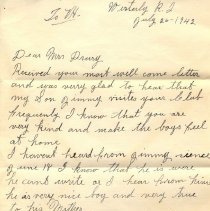 To VH.
Westerly R.I
July 20-1942.
Dear Mrs Drury
Received your most well come letter
and was very glad to hear that
my Son Jimmy visits your Club
frequenly I know that you are
very kind and make the boys feel
at home
I havent heard from Jimmy sience
June 14 I know that he is were
he cant write or I hear from him
he as very nice boy and very true
to his Mother